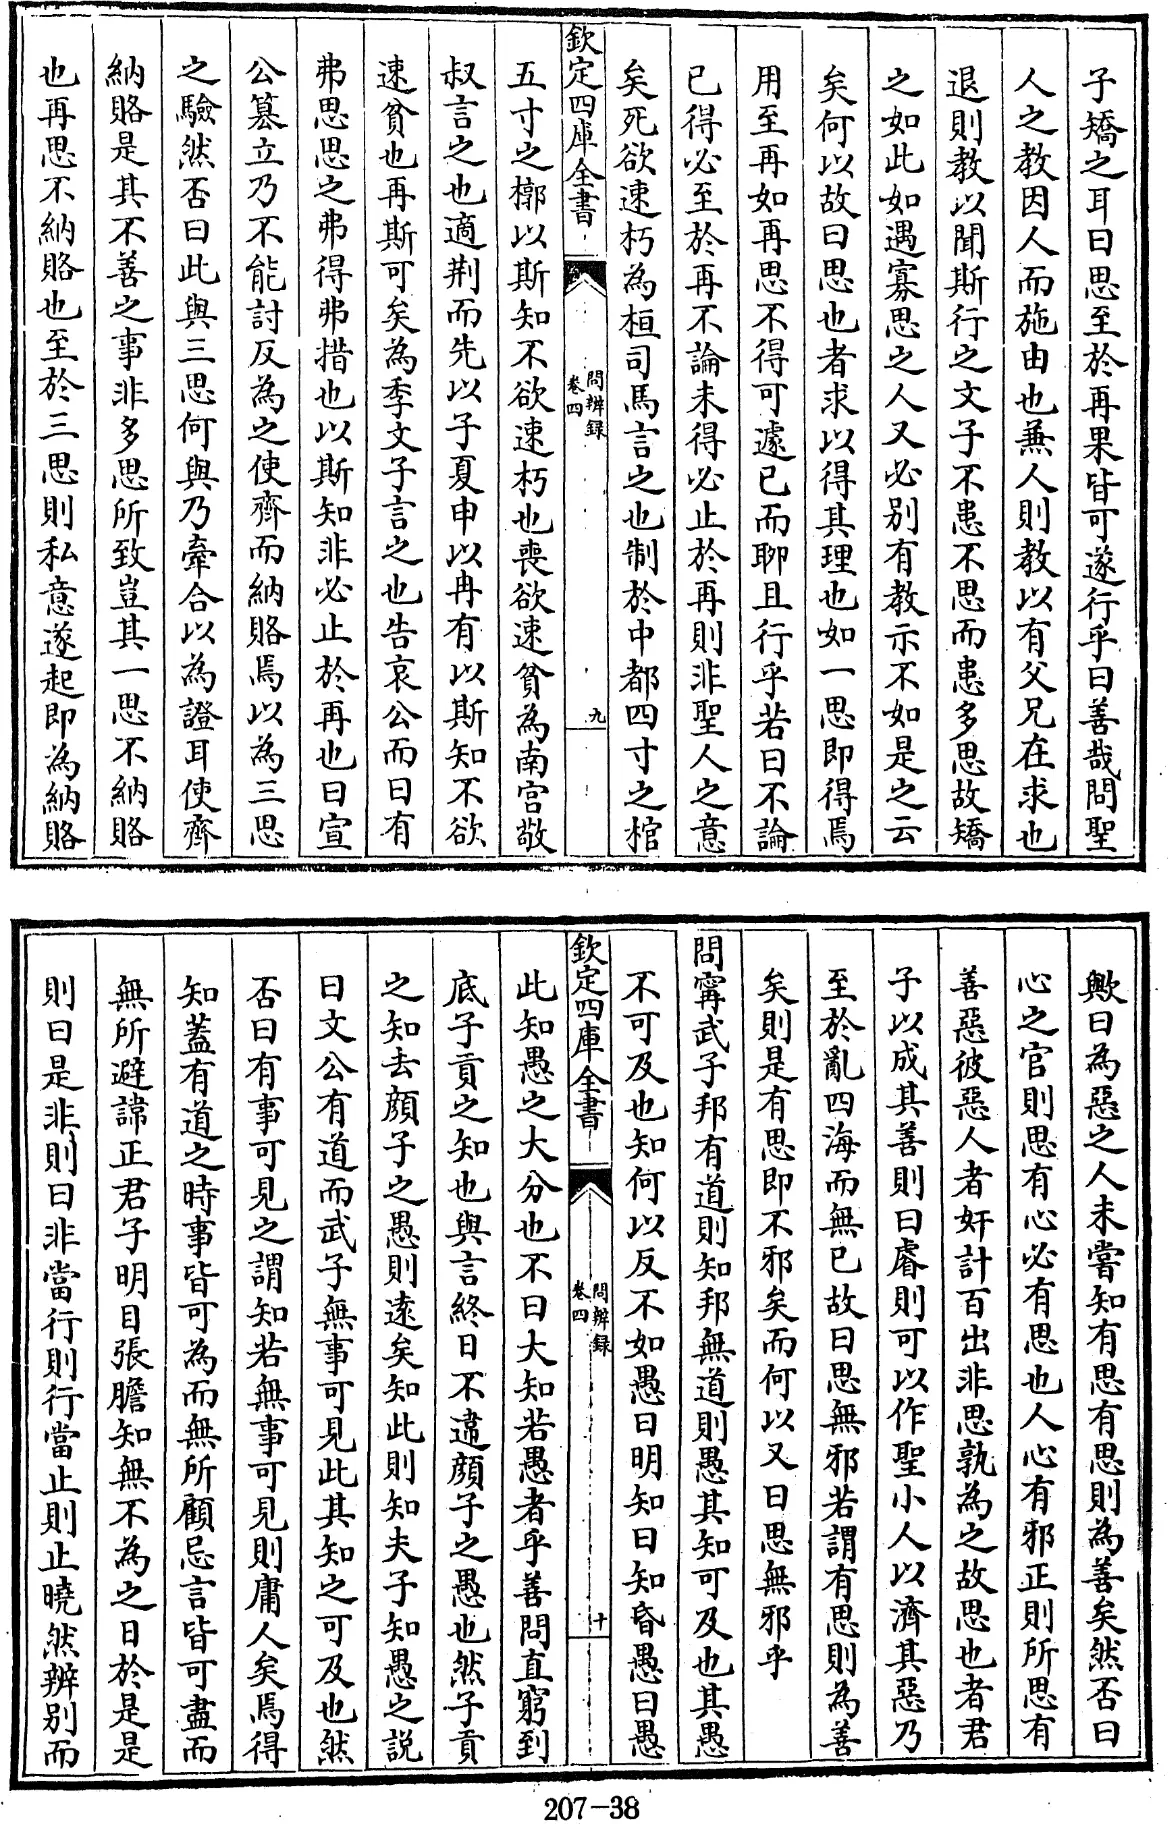 子矯之耳曰思至於再果皆可遂行乎曰善哉問聖
人之教因人而施由也兼人則教以有父兄在求也
退則教以聞斯行之文子不患不思而患多思故矯
之如此如遇寡思之人又必别有教示不如是之云
矣何以故曰思也者求以得其理也如一思即得焉
用至再如再思不得可遽已而聊且行乎若曰不論
已得必至於再不論未得必止於再則非聖人之意
矣死欲速朽為桓司馬言之也制於中都四寸之棺
欽定四庫全書
問辨録
卷四
九
五寸之槨以斯知不欲速朽也喪欲速貧為南宫敬
叔言之也適荆而先以子夏申以冉有以斯知不欲
速貧也再斯可矣為季文子言之也告哀公而曰有
弗思思之弗得弗措也以斯知非必止於再也曰宣
公簒立乃不能討反為之使齊而納賂焉以為三思
之驗然否曰此與三思何與乃牽合以為證耳使齊
納賂是其不善之事非多思所致豈其一思不納賂
也再思不納賂也至於三思則私意遂起即為納賂
歟曰為惡之人未嘗知有思有思則為善矣然否曰
心之官則思有心必有思也人心有邪正則所思有
善惡彼惡人者奸計百出非思孰為之故思也者君
子以成其善則曰睿則可以作聖小人以濟其惡乃
至於亂四海而無已故曰思無邪若謂有思則為善
矣則是有思即不邪矣而何以又曰思無邪乎
問甯武子邦有道則知邦無道則愚其知可及也其愚
不可及也知何以反不如愚曰明知曰知昏愚曰愚
欽定四庫全書
問辨録
卷四
十
此知愚之大分也不曰大知若愚者乎善問直窮到
底子貢之知也與言終日不違顔子之愚也然子貢
之知去顔子之愚則逺矣知此則知夫子知愚之説
曰文公有道而武子無事可見此其知之可及也然
否曰有事可見之謂知若無事可見則庸人矣焉得
知蓋有道之時事皆可為而無所顧忌言皆可盡而
無所避諱正君子明目張膽知無不為之日於是是
則曰是非則曰非當行則行當止則止曉然辨别而
207-38